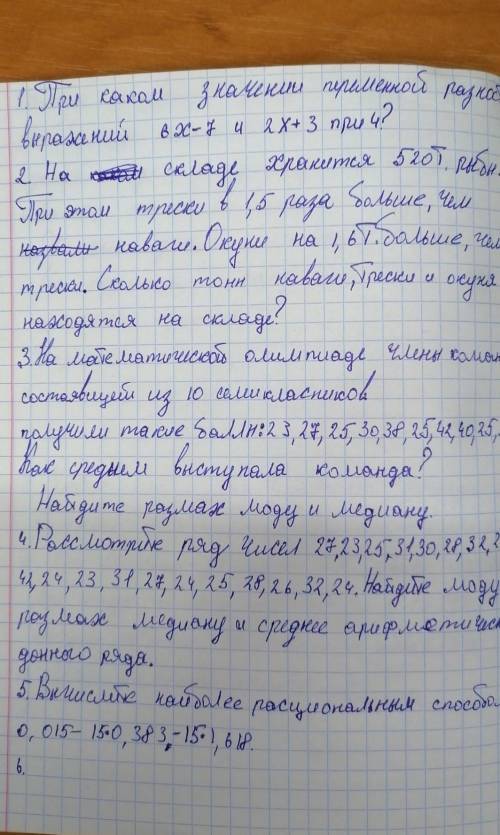 1. При каком значении переменной разнос
выражений 6х-7 и 2х+3 при 4?
2 На складе хранится 520т. рыбы.
При этом трески в 1,5 раза больше, чем
наваги. Окуня на 1,6т. больше, чем
трески. Сколько тонн наваги, трески и окуня
находятся на складе?
3. На математической олимпиаде члены коман
состаявщей из 10 семикласников
получили такие баллы: 23, 27, 25, 30, 38, 25, 42, 40, 25,
Как среднем выступала команда?
Найдите размах моду и медиану.
4. Рассмотрите ряд чисел 27, 23, 25, 31, 30, 28, 32,
42, 24, 23, 31, 27, 24, 25, 28, 26, 32, 24. Найдите моду
размах медиану и среднее арифметическ
донного ряда.
5. Вычислите наиболее расциональным способом
0, 015 - 15•0, 383, -15•1, 618.
6.